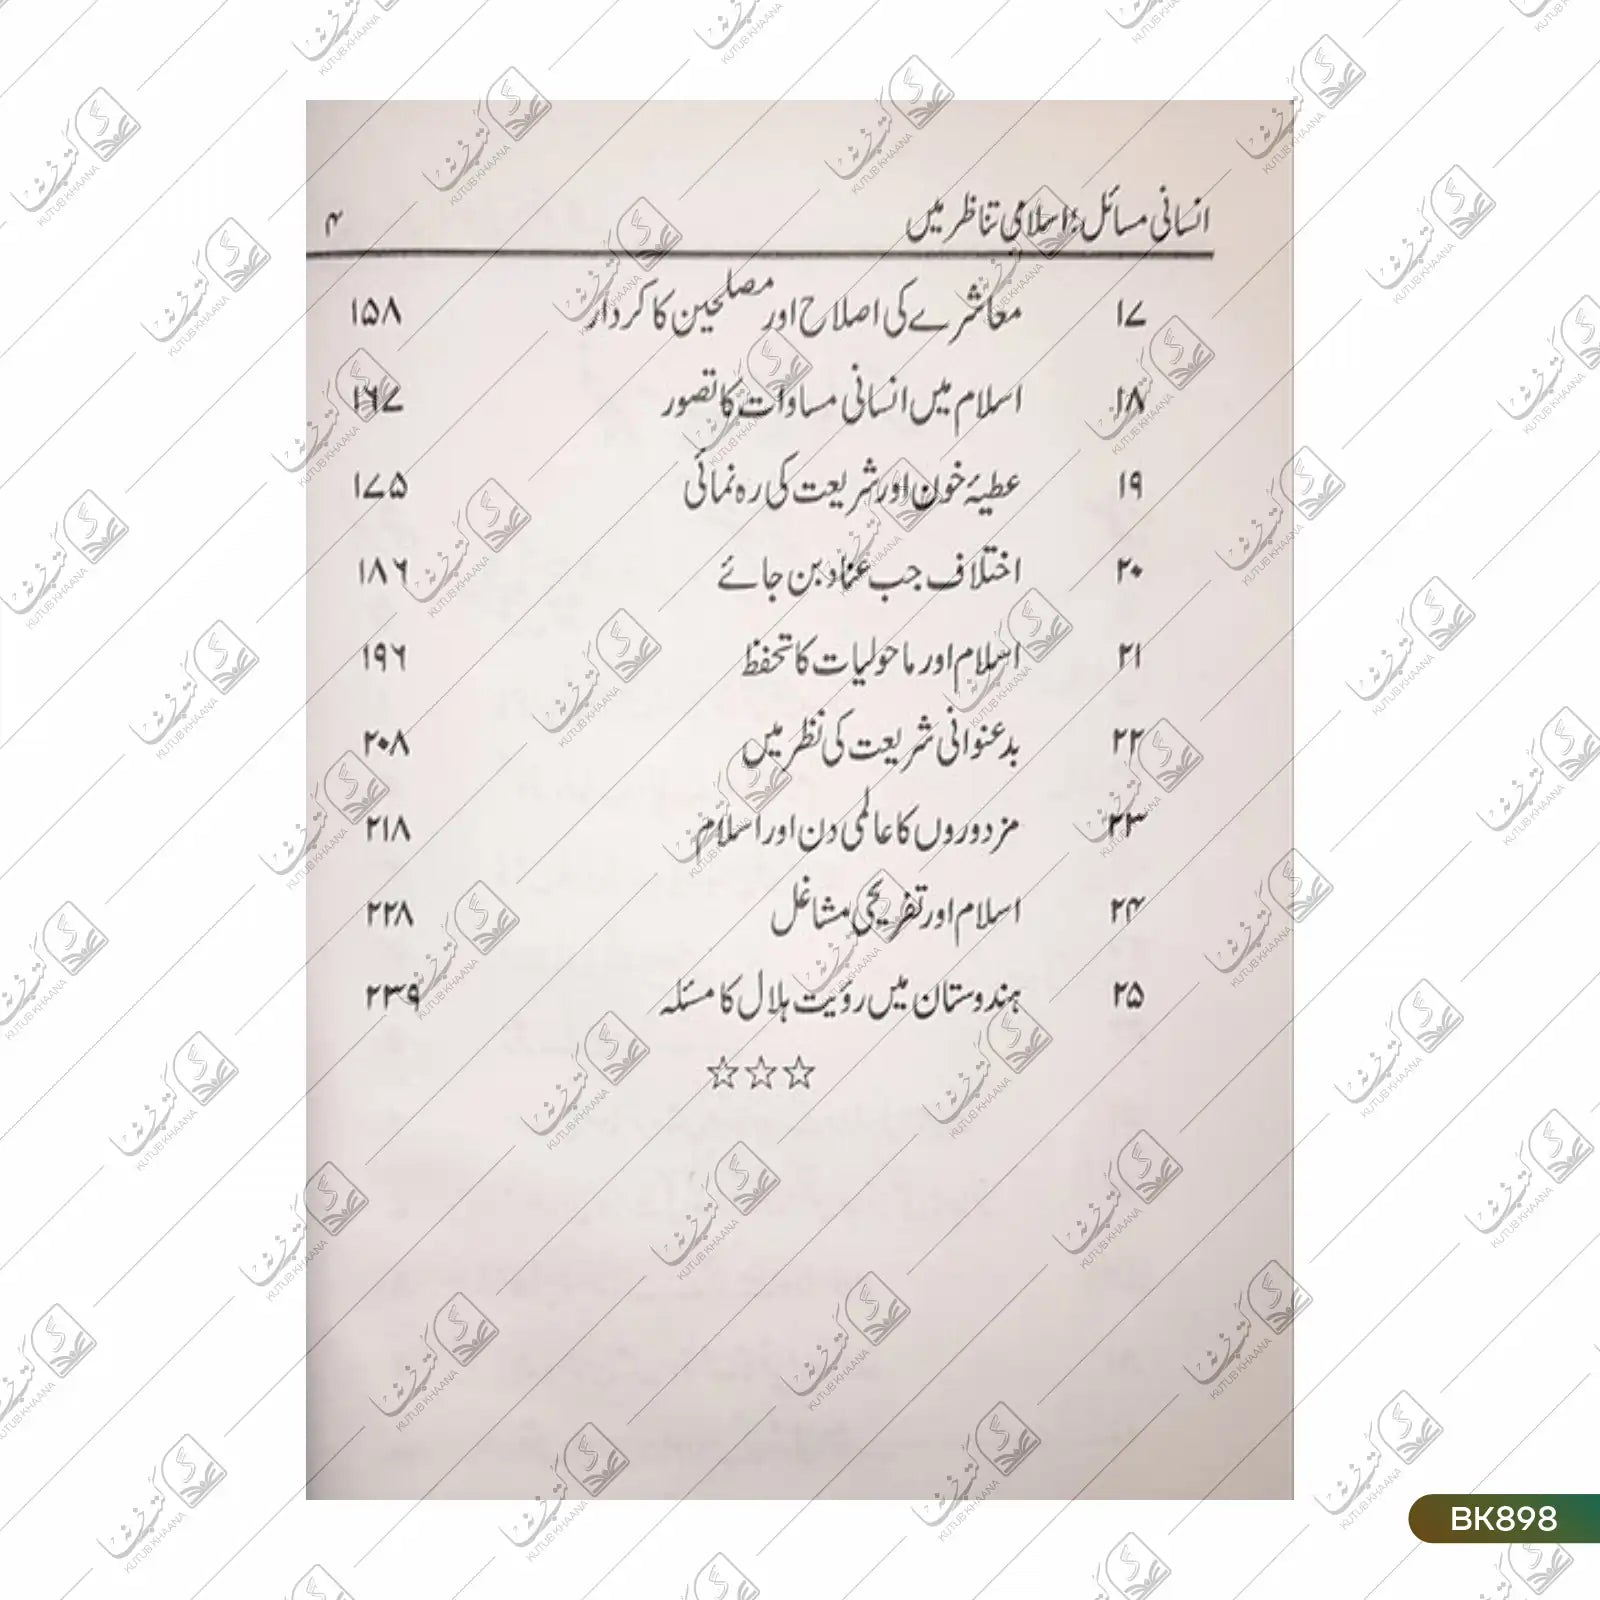 انسانی مسائل؛ اسلامی تناظر میں ۴
۱۷ معاشرے کی اصلاح اور مصلحین کا کردار ۱۵۸
۱۸ اسلام میں انسانی مساوات کا تصور ۱۶۷
۱۹ عطیۂ خون اور شریعت کی رہ نمائی ۱۷۵
۲۰ اختلاف جب عناد بن جائے ۱۸۶
۲۱ اسلام اور ماحولیات کا تحفظ ۱۹۶
۲۲ بدعنوانی شریعت کی نظر میں ۲۰۸
۲۳ مزدوروں کا عالمی دن اور اسلام ۲۱۸
۲۴ اسلام اور تفریحی مشاغل ۲۲۸
۲۵ ہندوستان میں رؤیت ہلال کا مسئلہ ۲۳۹
☆☆☆
BK898
کتب خانہ
KUTUB KHAANA